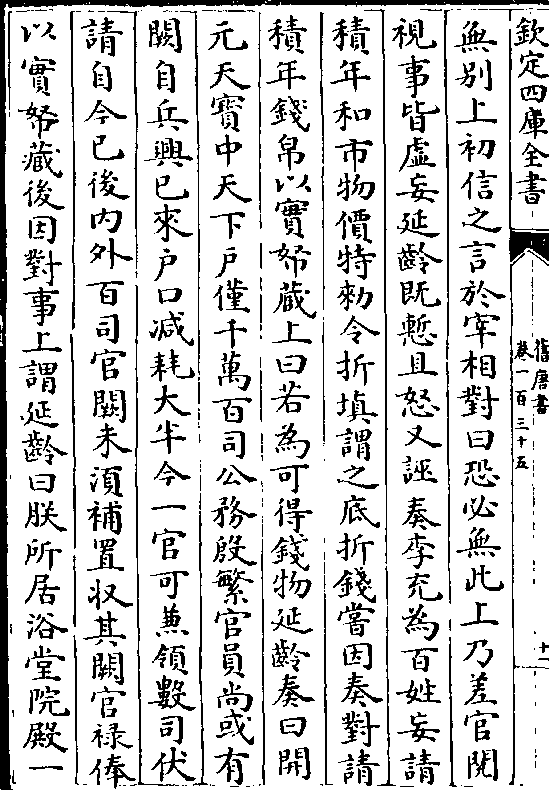 欽定四庫全書
舊唐書
卷一百三十五
十一
無别上初信之言於宰相對曰恐必無此上乃差官閱
視事皆虚妄延齡既慙且怒又誣奏李充為百姓妄請
積年和市物價特勅令折填謂之底折錢嘗因奏對請
積年錢帛以實帑藏上曰若為可得錢物延齡奏曰開
元天寶中天下戶僅千萬百司公務殷繁官員尚或有
闕自兵興已來戶口减耗大半今一官可兼領數司伏
請自今已後内外百司官闕未湏補置収其闕官禄俸
以實帑藏後因對事上謂延齡曰朕所居浴堂院殿一